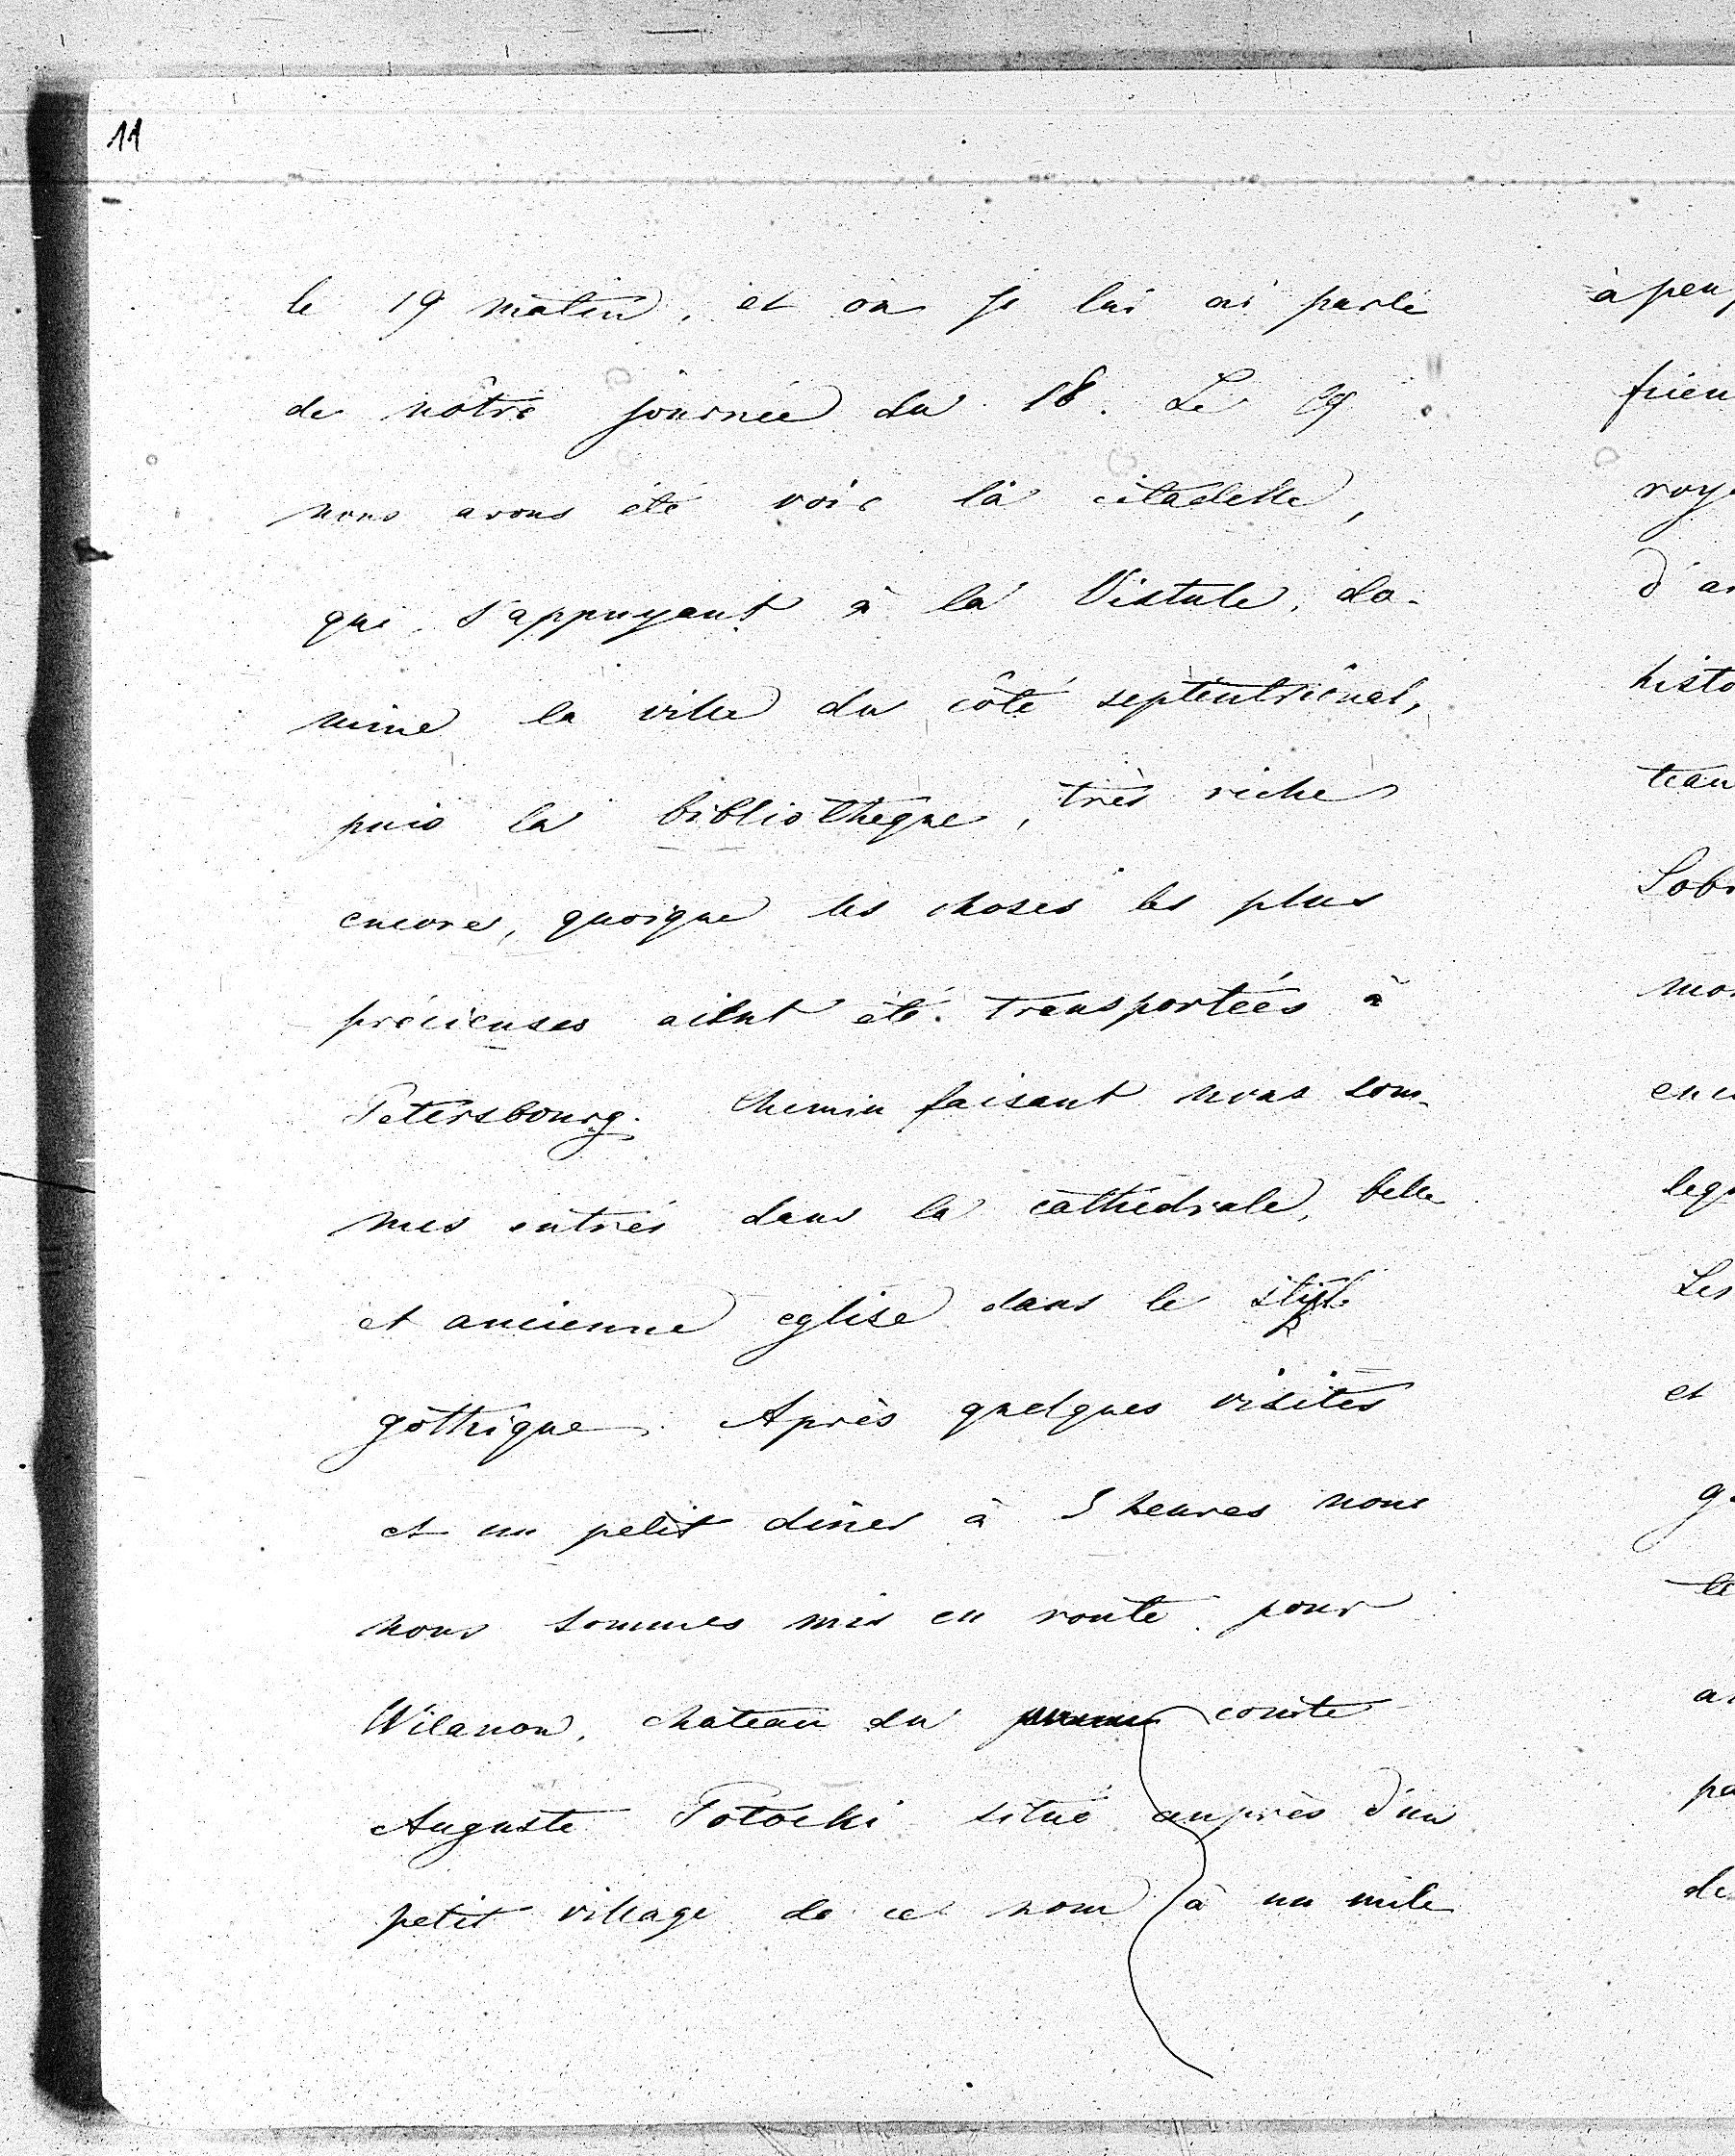 11
le 19 matin, et où je lui ai parlé
de nôtre journée du 18. Le 19
nous avons été voir la citadelle,
qui s'appuyant à la Vistule, do-
mine la ville du côté septentrional,
puis la bibliothèque, très riche
encore, quoique les choses les plus
précieuses aient été transportées à
Petersbourg. Chemin faisant nous som-
mes entrés dans la cathédrale, belle
et ancienne eglise dans le style
gothique. Après quelques visites
et un petit dîner à 3 heures nous
nous sommes mis en route pour
Wilanow, chateau du comte
Auguste Potocki situé auprès d'un
petit village de ce nom à un mile
à peu
frien
roy
d'a
histo
teau
Sob
mo
enc
lequ
Les
et
g
le
a
pa
de